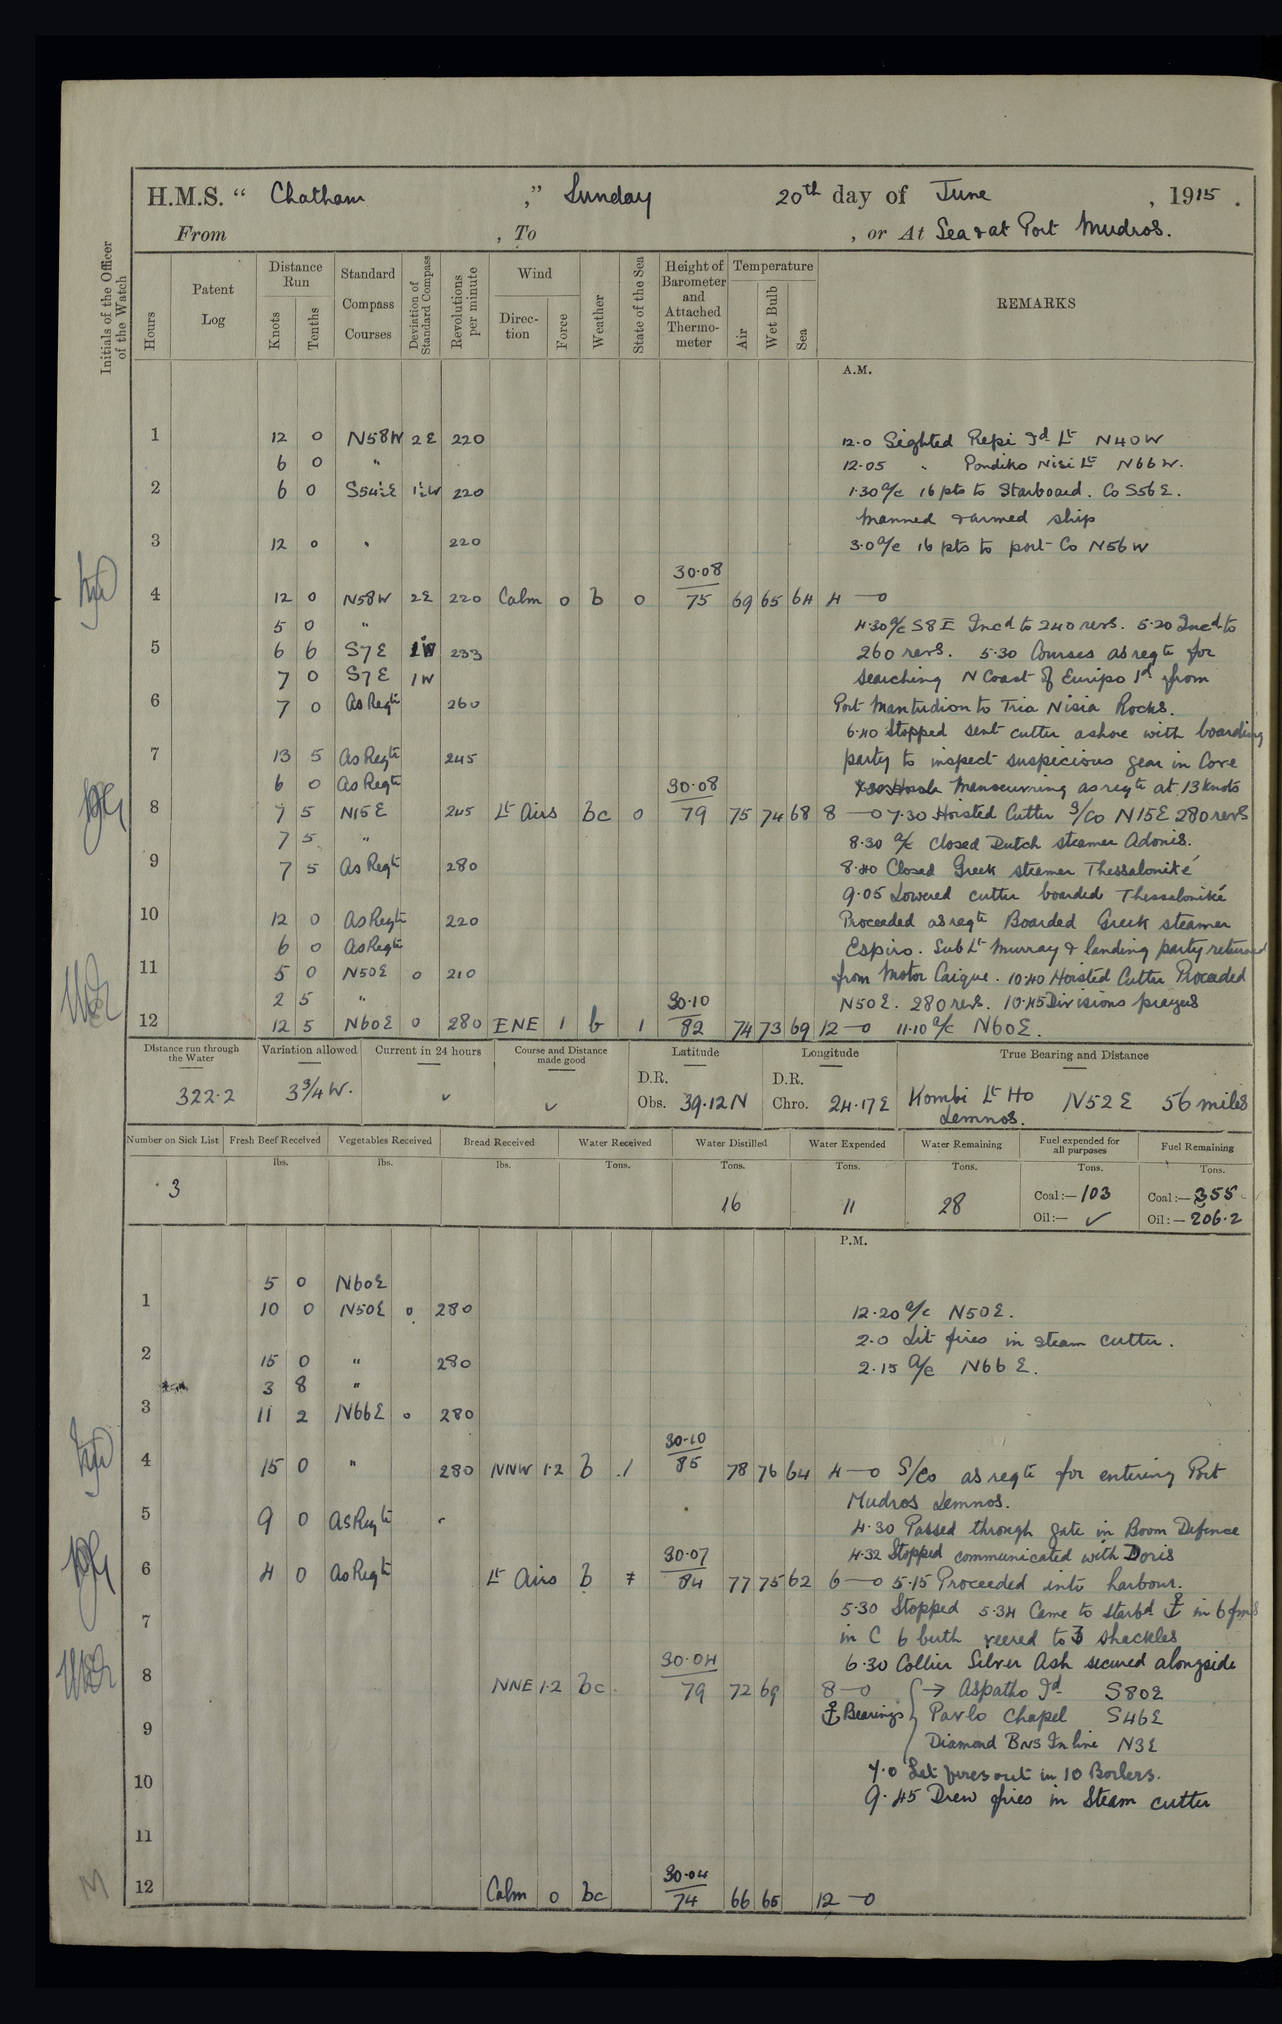 H.M.S. “ Chatham ,” Sunday 20th day of June , 1915 .
From , To , or At Sea & at Port Mudros.
Initials of the Officer of the Watch
Hours
Patent Log
Distance Run
Knots
Tenths
Standard Compass Courses
Deviation of Standard Compass
Revolutions per minute
Wind
Direction
Force
Weather
State of the Sea
Height of Barometer and Attached Thermometer
Temperature
Air
Wet Bulb
Sea
REMARKS
A.M.
1 12 0 N58W 2E 220 12.0 Sighted Repi Id Lt N40W
6 0 " 12.05 " Pondiko Nisi Lt N66W.
2 6 0 S54½E 1½W 220 1.30 a/c 16 pts to Starboard. Co S56E.
Manned & armed ship
3 12 0 " 220 3.0 a/c 16 pts to port Co N56W
30.08
4 12 0 N58W 2E 220 Calm 0 b 0 75 69 65 64 4 — 0
5 0 " 4.30 a/c S8E Incd to 240 revs. 5.20 Incd to
5 6 6 S7E 1W 233 260 revs. 5.30 Courses as reqte for
7 0 S7E 1W searching N Coast of Euripo Id from
6 7 0 As Reqte 260 Port Mantudion to Tria Nisia Rocks.
6.40 Stopped sent cutter ashore with boarding
7 13 5 As Reqte 245 party to inspect suspicious gear in Cove
6 0 As Reqte 30.08 Manoeuvring as reqte at 13 knots
8 7 5 N15E 245 Lt Airs bc 0 79 75 74 68 8 — 0 7.30 Hoisted Cutter S/Co N15E 280 revs
7 5 " 8.30 a/c closed Dutch steamer Adonis.
9 7 5 As Reqte 280 8.40 Closed Greek steamer Thessaloniké
9.05 Lowered cutter boarded Thessaloniké
10 12 0 As Reqte 220 Proceeded as reqte Boarded Greek steamer
6 0 As Reqte Espiro. Sub Lt Murray & landing party returned
11 5 0 N50E 0 210 from Motor Caique. 10.40 Hoisted Cutter Proceeded
2 5 " 30.10 N50E. 280 revs. 10.45 Divisions prayers
12 12 5 N60E 0 280 ENE 1 b 1 82 74 73 69 12 — 0 11.10 a/c N60E.
Distance run through the Water
Variation allowed
Current in 24 hours
Course and Distance made good
Latitude
Longitude
True Bearing and Distance
D.R. D.R.
322.2 3¾W. ✓ ✓ Obs. 39.12N Chro. 24.17E Kombi Lt Ho N52E 56 miles
Lemnos.
Number on Sick List Fresh Beef Received Vegetables Received Bread Received Water Received Water Distilled Water Expended Water Remaining Fuel expended for all purposes Fuel Remaining
lbs. lbs. lbs. Tons. Tons. Tons. Tons. Tons. Tons.
3 16 11 28 Coal:— 103 Coal:— 355
Oil:— ✓ Oil:— 206.2
P.M.
5 0 N60E
1 10 0 N50E 0 280 12.20 a/c N50E.
2.0 Lit fires in steam cutter.
2 15 0 " 280 2.15 a/c N66E.
3 8 "
3 11 2 N66E 0 280
30.10
4 15 0 " 280 NNW 1.2 b 1 85 78 76 64 4 — 0 S/Co as reqte for entering Port
Mudros Lemnos.
5 9 0 As Reqte 4.30 Passed through gate in Boom Defence
30.07 4.32 Stopped communicated with Doris
6 4 0 As Reqte Lt Airs b 84 77 75 62 6 — 0 5.15 Proceeded into harbour.
5.30 Stopped 5.34 Came to Starbd ⚓ in 6 fms
7 in C 6 berth veered to 3 shackles
30.04 6.30 Collier Silver Ash secured alongside
8 NNE 1.2 bc. 79 72 69 8 — 0 → Aspatho Id S80E
⚓ Bearings Pavlo Chapel S46E
9 Diamond Bns In line N3E
7.0 Let fires out in 10 Boilers.
10 9.45 Drew fires in Steam cutter
11
30.04
12 Calm 0 bc 74 66 65 12 — 0